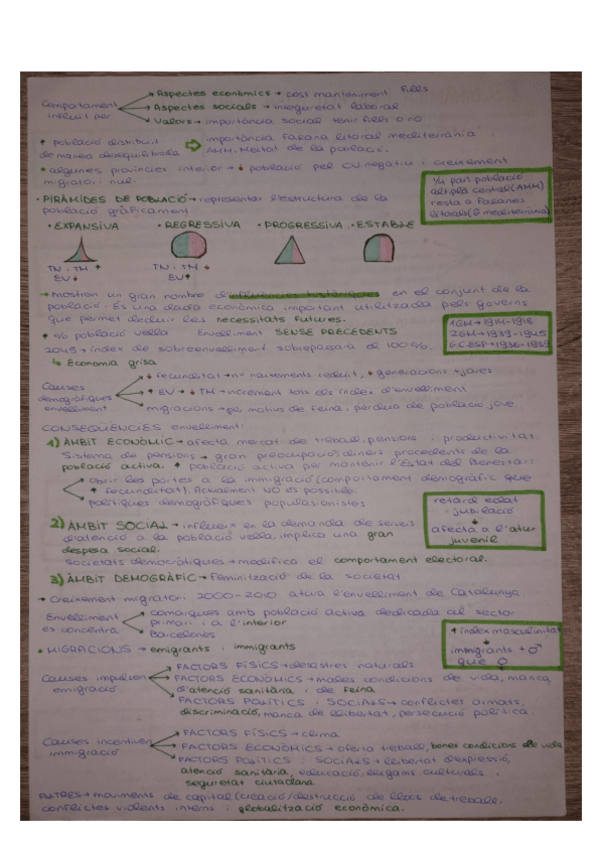 Aspectes econòmics → cost manteniment fills
Comportament influit per
Aspectes socials → inseguretat laboral
Valors → importància social tenir fills o no
• població distribuit de manera desequilibrada
importància façana litoral mediterrània
AMM. Meitat de la població.
• algunes províncies interior → ↓ població pel CV negatiu i creixement
migratori nul.
1/4 part població
altiplà central (AMM)
resta a façanes
litorals (↑ mediterrània)
• PIRÀMIDES DE POBLACIÓ → representar l'estructura de la
població gràficament
• EXPANSIVA • REGRESSIVA • PROGRESSIVA • ESTABLE
TN i TM ↑
EV ↓
TN i TM ↓
EV ↑
→ Mostren un gran nombre d'influències històriques en el conjunt de la
població. És una dada econòmica important utilitzada pels governs
que permet deduir les necessitats futures.
1GM → 1914-1918
2GM → 1939-1945
G.C.ESP → 1936-1939
• % població vella Envelliment SENSE PRECEDENTS
2045 → índex de sobreenvelliment sobrepassarà el 100%.
↳ Economia grisa
Causes demogràfiques envelliment
↓ fecunditat → nº naixements reduït, ↓ generacions + joves
↑ EV → ↓ TM → increment tots els índex d'envelliment
migracions → per motius de feina i pèrdua de població jove
CONSEQÜÈNCIES envelliment:
1) ÀMBIT ECONÒMIC → afecta mercat de treball, pensions i productivitat.
Sistema de pensions → gran preocupació, diners procedents de la
població activa. ↑ població activa per mantenir l'Estat del Benestar:
obrir les portes a la immigració (comportament demogràfic que
↑ fecunditat). Actualment NO és possible.
polítiques demogràfiques populasionistes
2) ÀMBIT SOCIAL → influeix en la demanda de serveis
d'atenció a la població vella, implica una gran
despesa social.
Societats democràtiques → modifica el comportament electoral.
retard edat
jubilació
↓
afecta a l'atur
juvenil
3) ÀMBIT DEMOGRÀFIC → Feminització de la societat
• Creixement migratori 2000-2010 atura l'envelliment de Catalunya
Envelliment es concentra
comarques amb població activa dedicada al sector
primari i a l'interior
Barcelonès
• MIGRACIONS → emigrants i immigrants
↑ índex masculinitat
↓
immigrants + ♂
que ♀
Causes impulsen emigració
FACTORS FÍSICS → desastres naturals
FACTORS ECONÒMICS → males condicions de vida, manca
d'atenció sanitària i de feina
FACTORS POLÍTICS i SOCIALS → conflictes armats,
discriminació, manca de llibertat, persecució política.
Causes incentiven immigració
FACTORS FÍSICS → clima
FACTORS ECONÒMICS → oferta treball, bones condicions de vida
FACTORS POLÍTICS i SOCIALS → llibertat d'expressió,
atenció sanitària, educació, lligams culturals i
seguretat ciutadana
ALTRES → moviments de capital (creació/destrucció de llocs de treball,
conflictes violents interns i globalització econòmica.